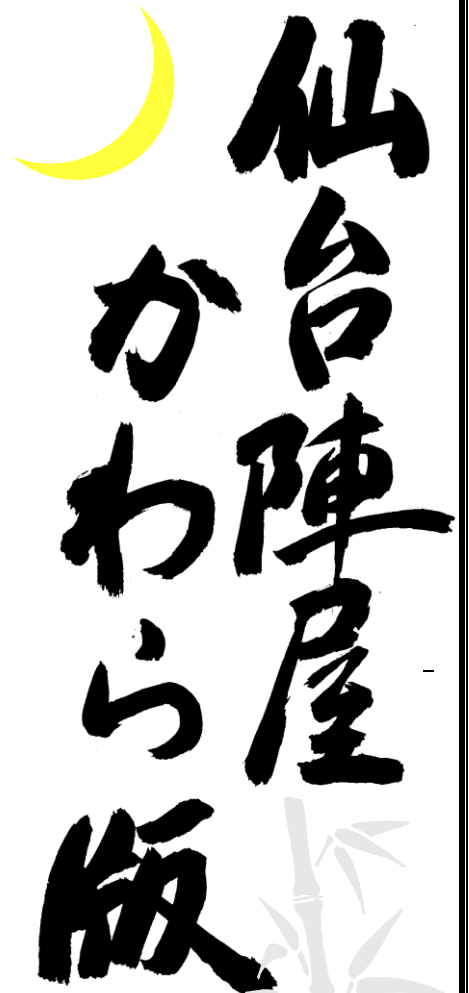 仙台陣屋
かわら版